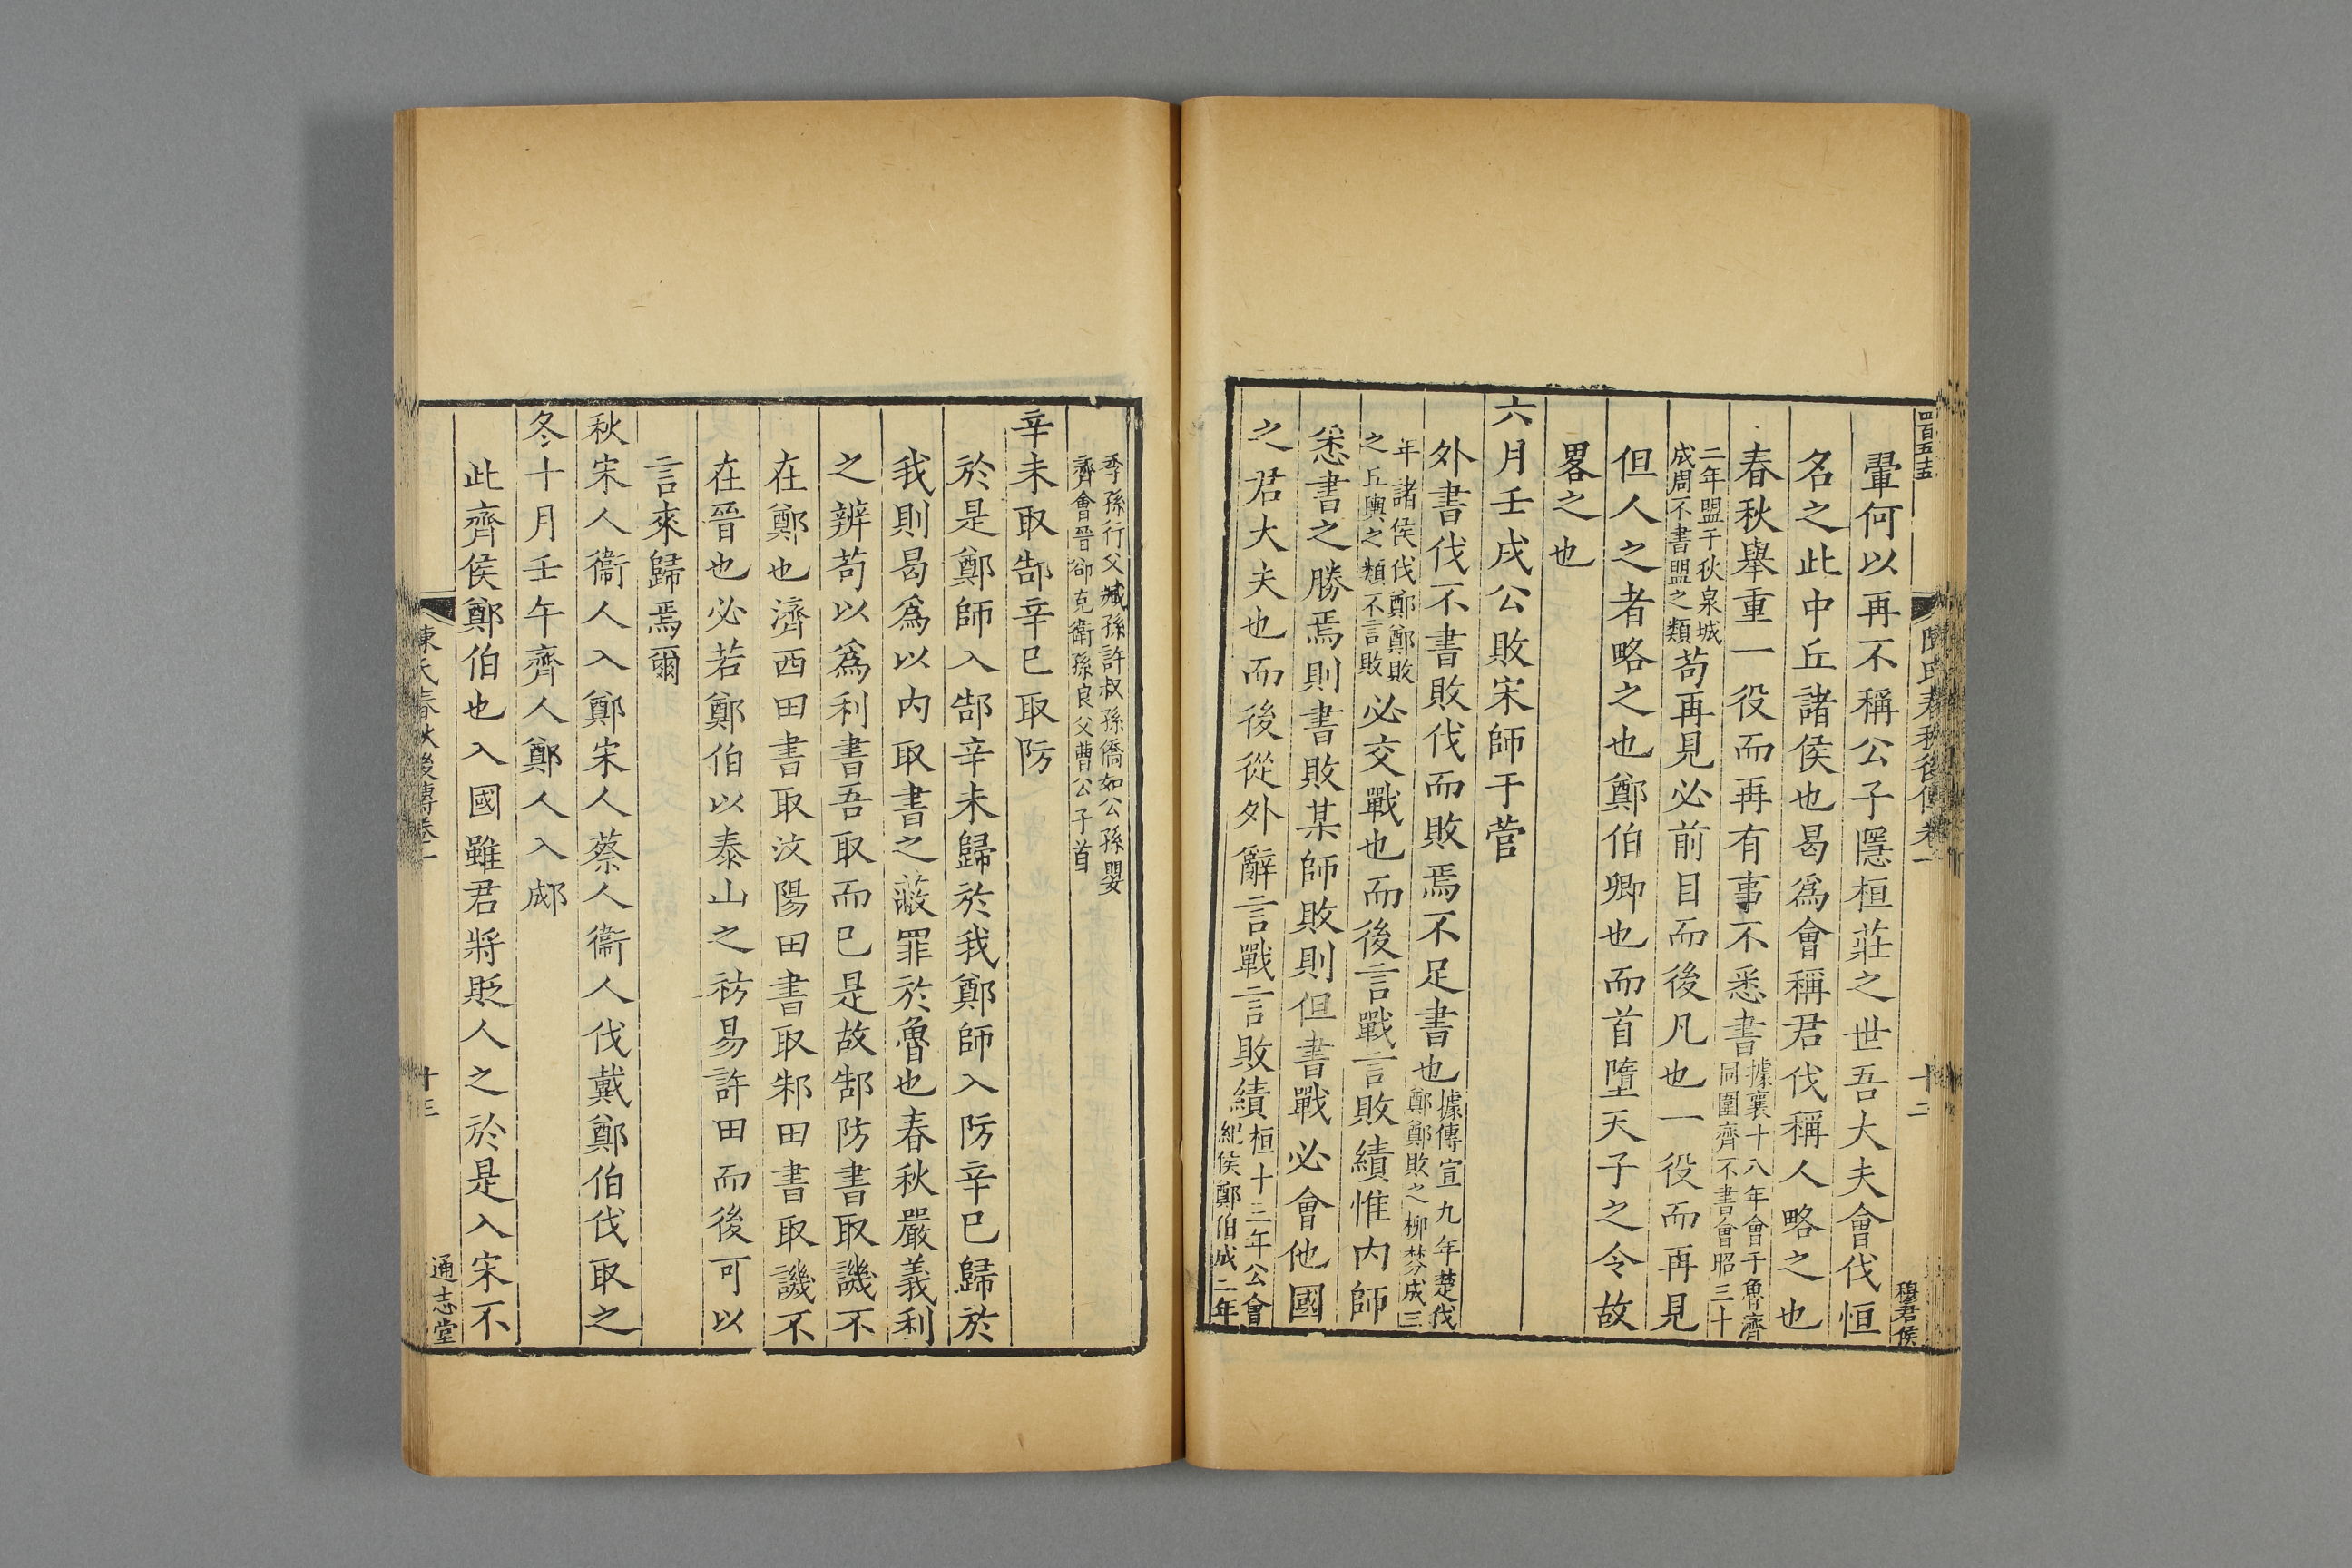 四百五十五
陳氏春秋後傳卷一
十二
穆君侯
翬何以再不稱公子隱桓莊之世吾大夫會伐恒
名之此中丘諸侯也曷爲會稱君伐稱人略之也
春秋舉重一役而再有事不悉書據襄十八年會于魯濟同圍齊不書會昭三十
二年盟于秋泉城成周不書盟之類苟再見必前目而後凡也一役而再見
但人之者略之也鄭伯卿也而首墮天子之令故
畧之也
六月壬戌公敗宋師于菅
外書伐不書敗伐而敗焉不足書也據傳宣九年楚伐鄭鄭敗之柳棼成三
年諸侯伐鄭鄭敗之丘輿之類不言敗必交戰也而後言戰言敗績惟内師
悉書之勝焉則書敗某師敗則但書戰必會他國
之君大夫也而後從外辭言戰言敗績桓十三年公會紀侯鄭伯成二年
季孫行父臧孫許叔孫僑如公孫嬰齊會晉郤克衛孫良父曹公子首
辛未取郜辛巳取防
於是鄭師入郜辛未歸於我鄭師入防辛巳歸於
我則曷爲以内取書之蔽罪於魯也春秋嚴義利
之辨苟以爲利書吾取而已是故郜防書取譏不
在鄭也濟西田書取汶陽田書取邾田書取譏不
在晉也必若鄭伯以泰山之祊易許田而後可以
言來歸焉爾
秋宋人衞人入鄭宋人蔡人衞人伐戴鄭伯伐取之
冬十月壬午齊人鄭人入郕
此齊侯鄭伯也入國雖君將貶人之於是入宋不
陳氏春秋後傳卷一
十三
通志堂